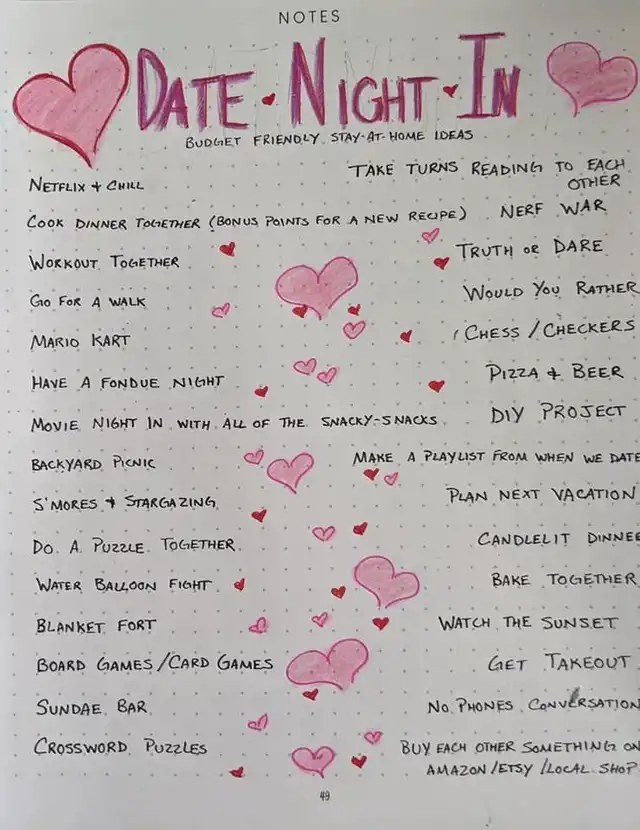 NOTES
DATE · NIGHT · IN
BUDGET FRIENDLY STAY-AT-HOME IDEAS
NETFLIX + CHILL
COOK DINNER TOGETHER (BONUS POINTS FOR A NEW RECIPE)
WORKOUT TOGETHER
GO FOR A WALK
MARIO KART
HAVE A FONDUE NIGHT
MOVIE NIGHT IN WITH ALL OF THE SNACKY-SNACKS
BACKYARD PICNIC
S'MORES + STARGAZING
DO A PUZZLE TOGETHER
WATER BALLOON FIGHT
BLANKET FORT
BOARD GAMES/CARD GAMES
SUNDAE BAR
CROSSWORD PUZZLES
TAKE TURNS READING TO EACH
OTHER
NERF WAR
TRUTH OR DARE
WOULD YOU RATHER
CHESS/CHECKERS
PIZZA + BEER
DIY PROJECT
MAKE A PLAYLIST FROM WHEN WE DATE
PLAN NEXT VACATION
CANDLELIT DINNE
BAKE TOGETHER
WATCH THE SUNSET
GET TAKEOUT
NO PHONES CONVERSATION
BUY EACH OTHER SOMETHING ON
AMAZON/ETSY/LOCAL SHOP
49